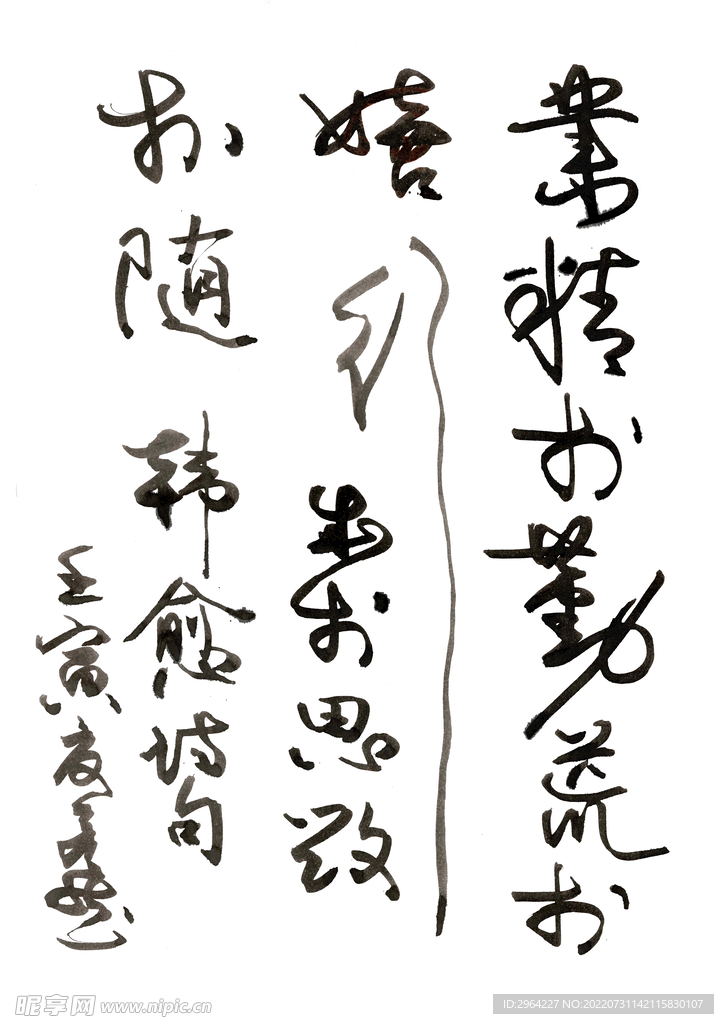 業精於勤荒於
嬉行成於思毁
於随 韩愈诗句
壬寅夏
昵享网 www.nipic.cn
ID:2964227 NO:20220731142115830107